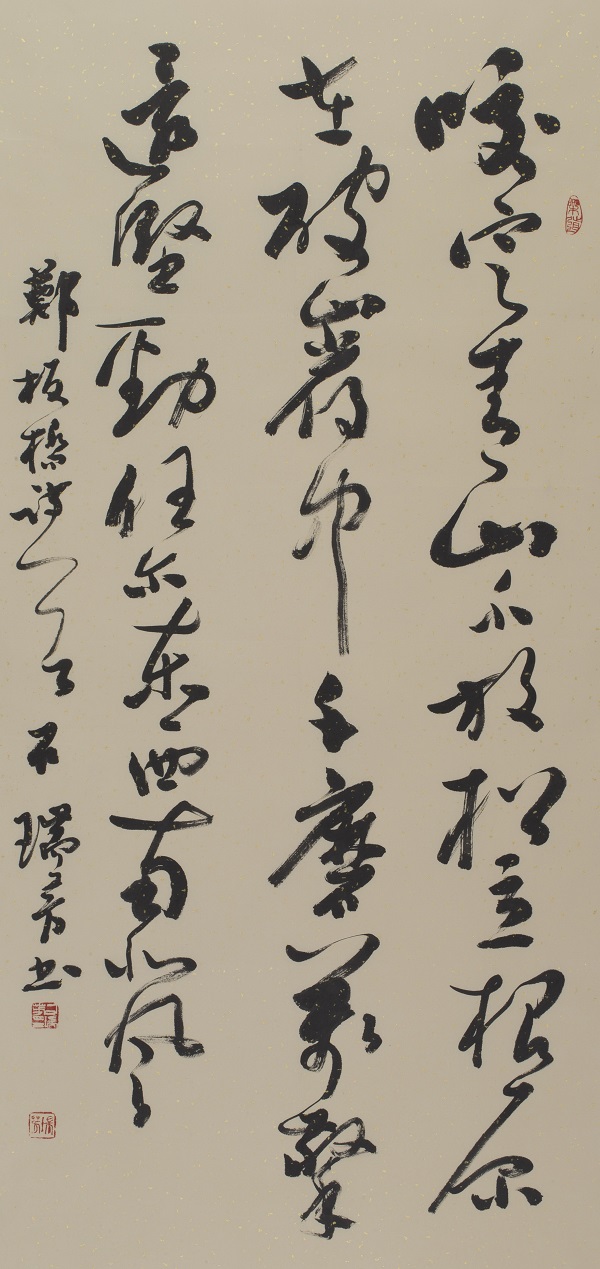 咬定青山不放松立根原
在破巖中千磨萬擊
還堅勁任尔東西南北風
鄭板橋詩一首石瑞芳书